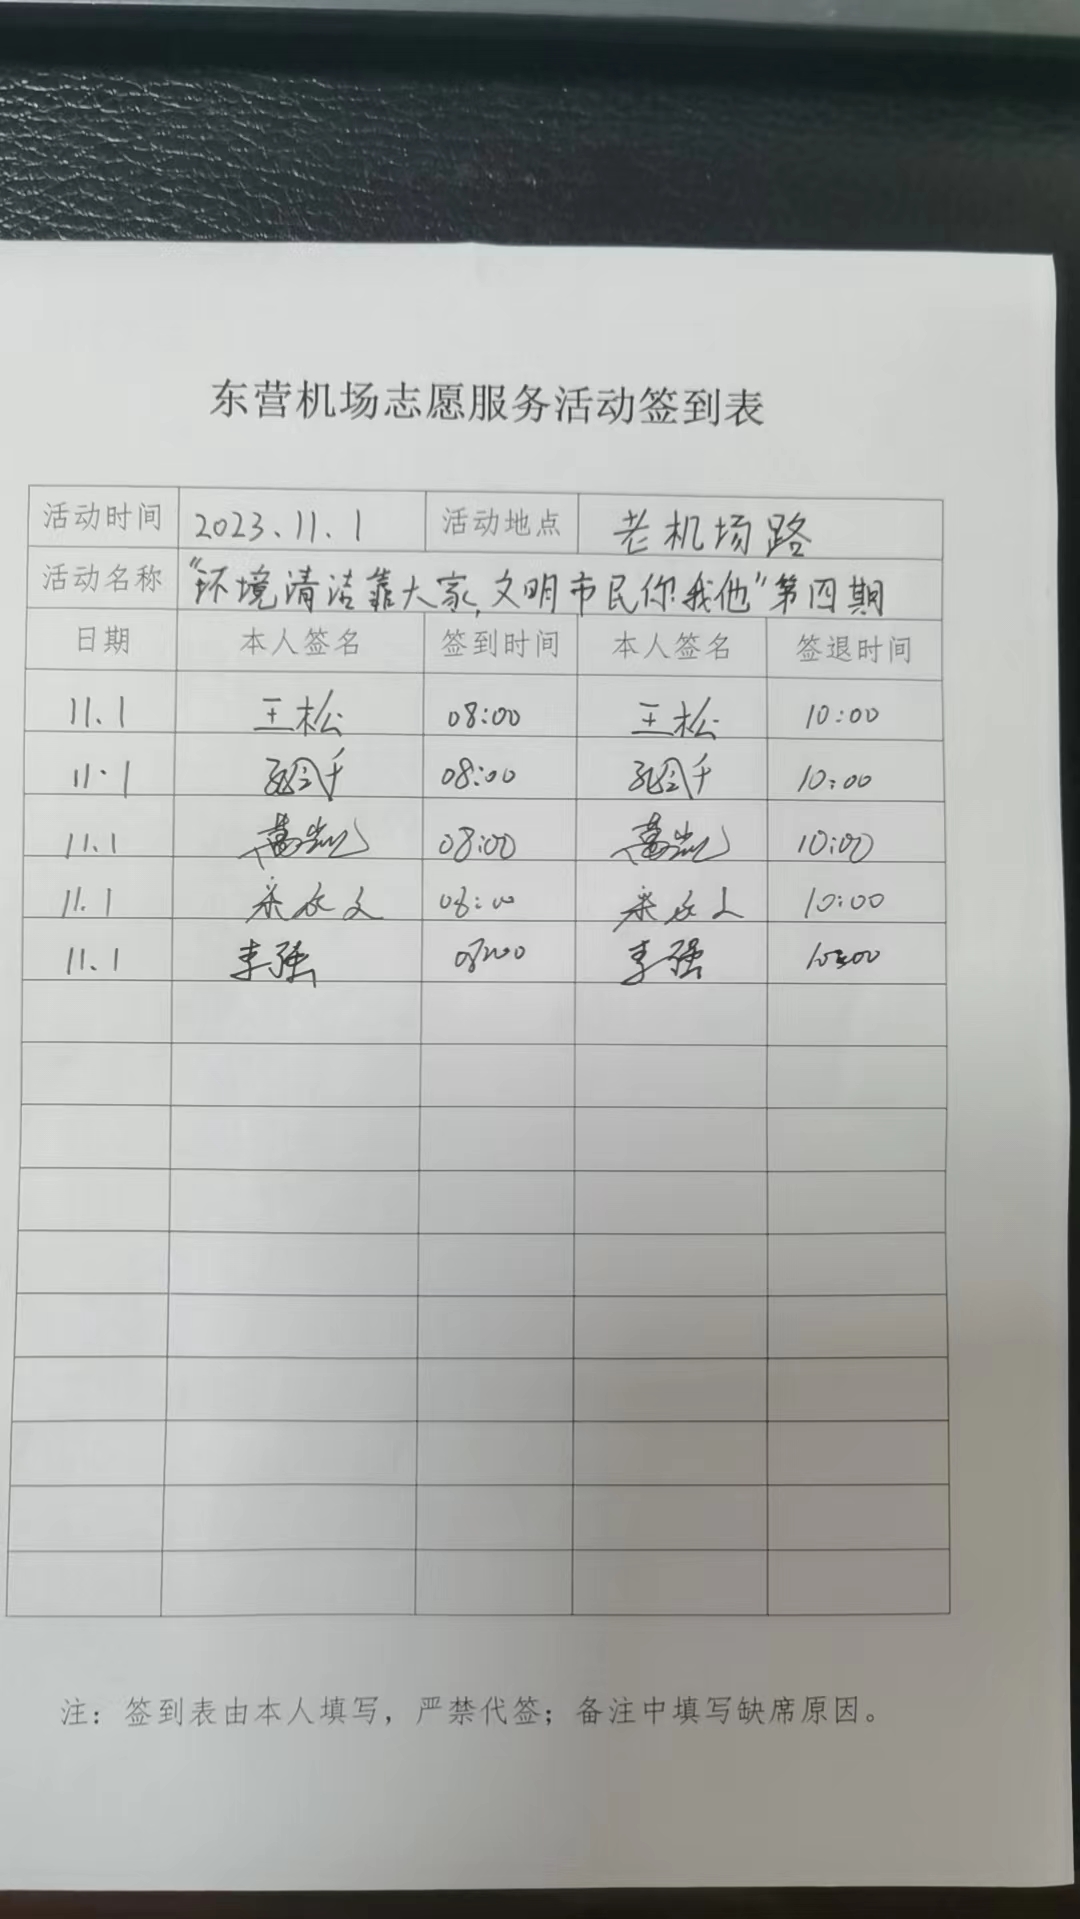 东营机场志愿服务活动签到表
活动时间 2023.11.1 活动地点 老机场路
活动名称 "环境清洁靠大家,文明市民你我他"第四期
日期 本人签名 签到时间 本人签名 签退时间
11.1 王松 08:00 王松 10:00
11.1 08:00 10:00
11.1 08:00 10:00
11.1 08:00 10:00
11.1 李强 08:00 李强 10:00
注：签到表由本人填写，严禁代签；备注中填写缺席原因。